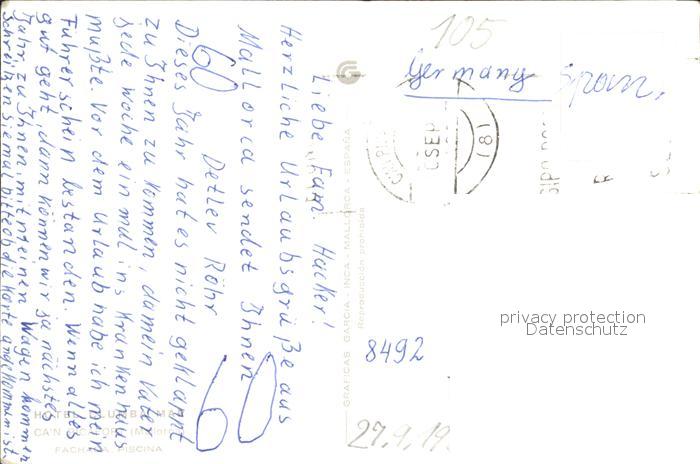 Liebe Fam. Hacker!
Herzliche Urlaubsgrüße aus
Mallorca sendet Ihnen
Detlev Röhr
60
60
Dieses Jahr hat es nicht geklappt
zu Ihnen zu kommen, da mein Vater
jede Woche einmal ins Krankenhaus
mußte. Vor dem Urlaub habe ich mein
Führerschein bestanden. Wenn alles
gut geht, dann können wir ja nächstes
Jahr zu Ihnen mit einen Wagen kommen
Schreiben sie mal bitte ob die Karte angekommen ist.
GRAFICAS GARCIA - INCA - MALLORCA - ESPAÑA
Reproducción prohibida
105
Germany
SEP
(81)
privacy protection
Datenschutz
8492
27.9.19
HOTEL
PISCINA